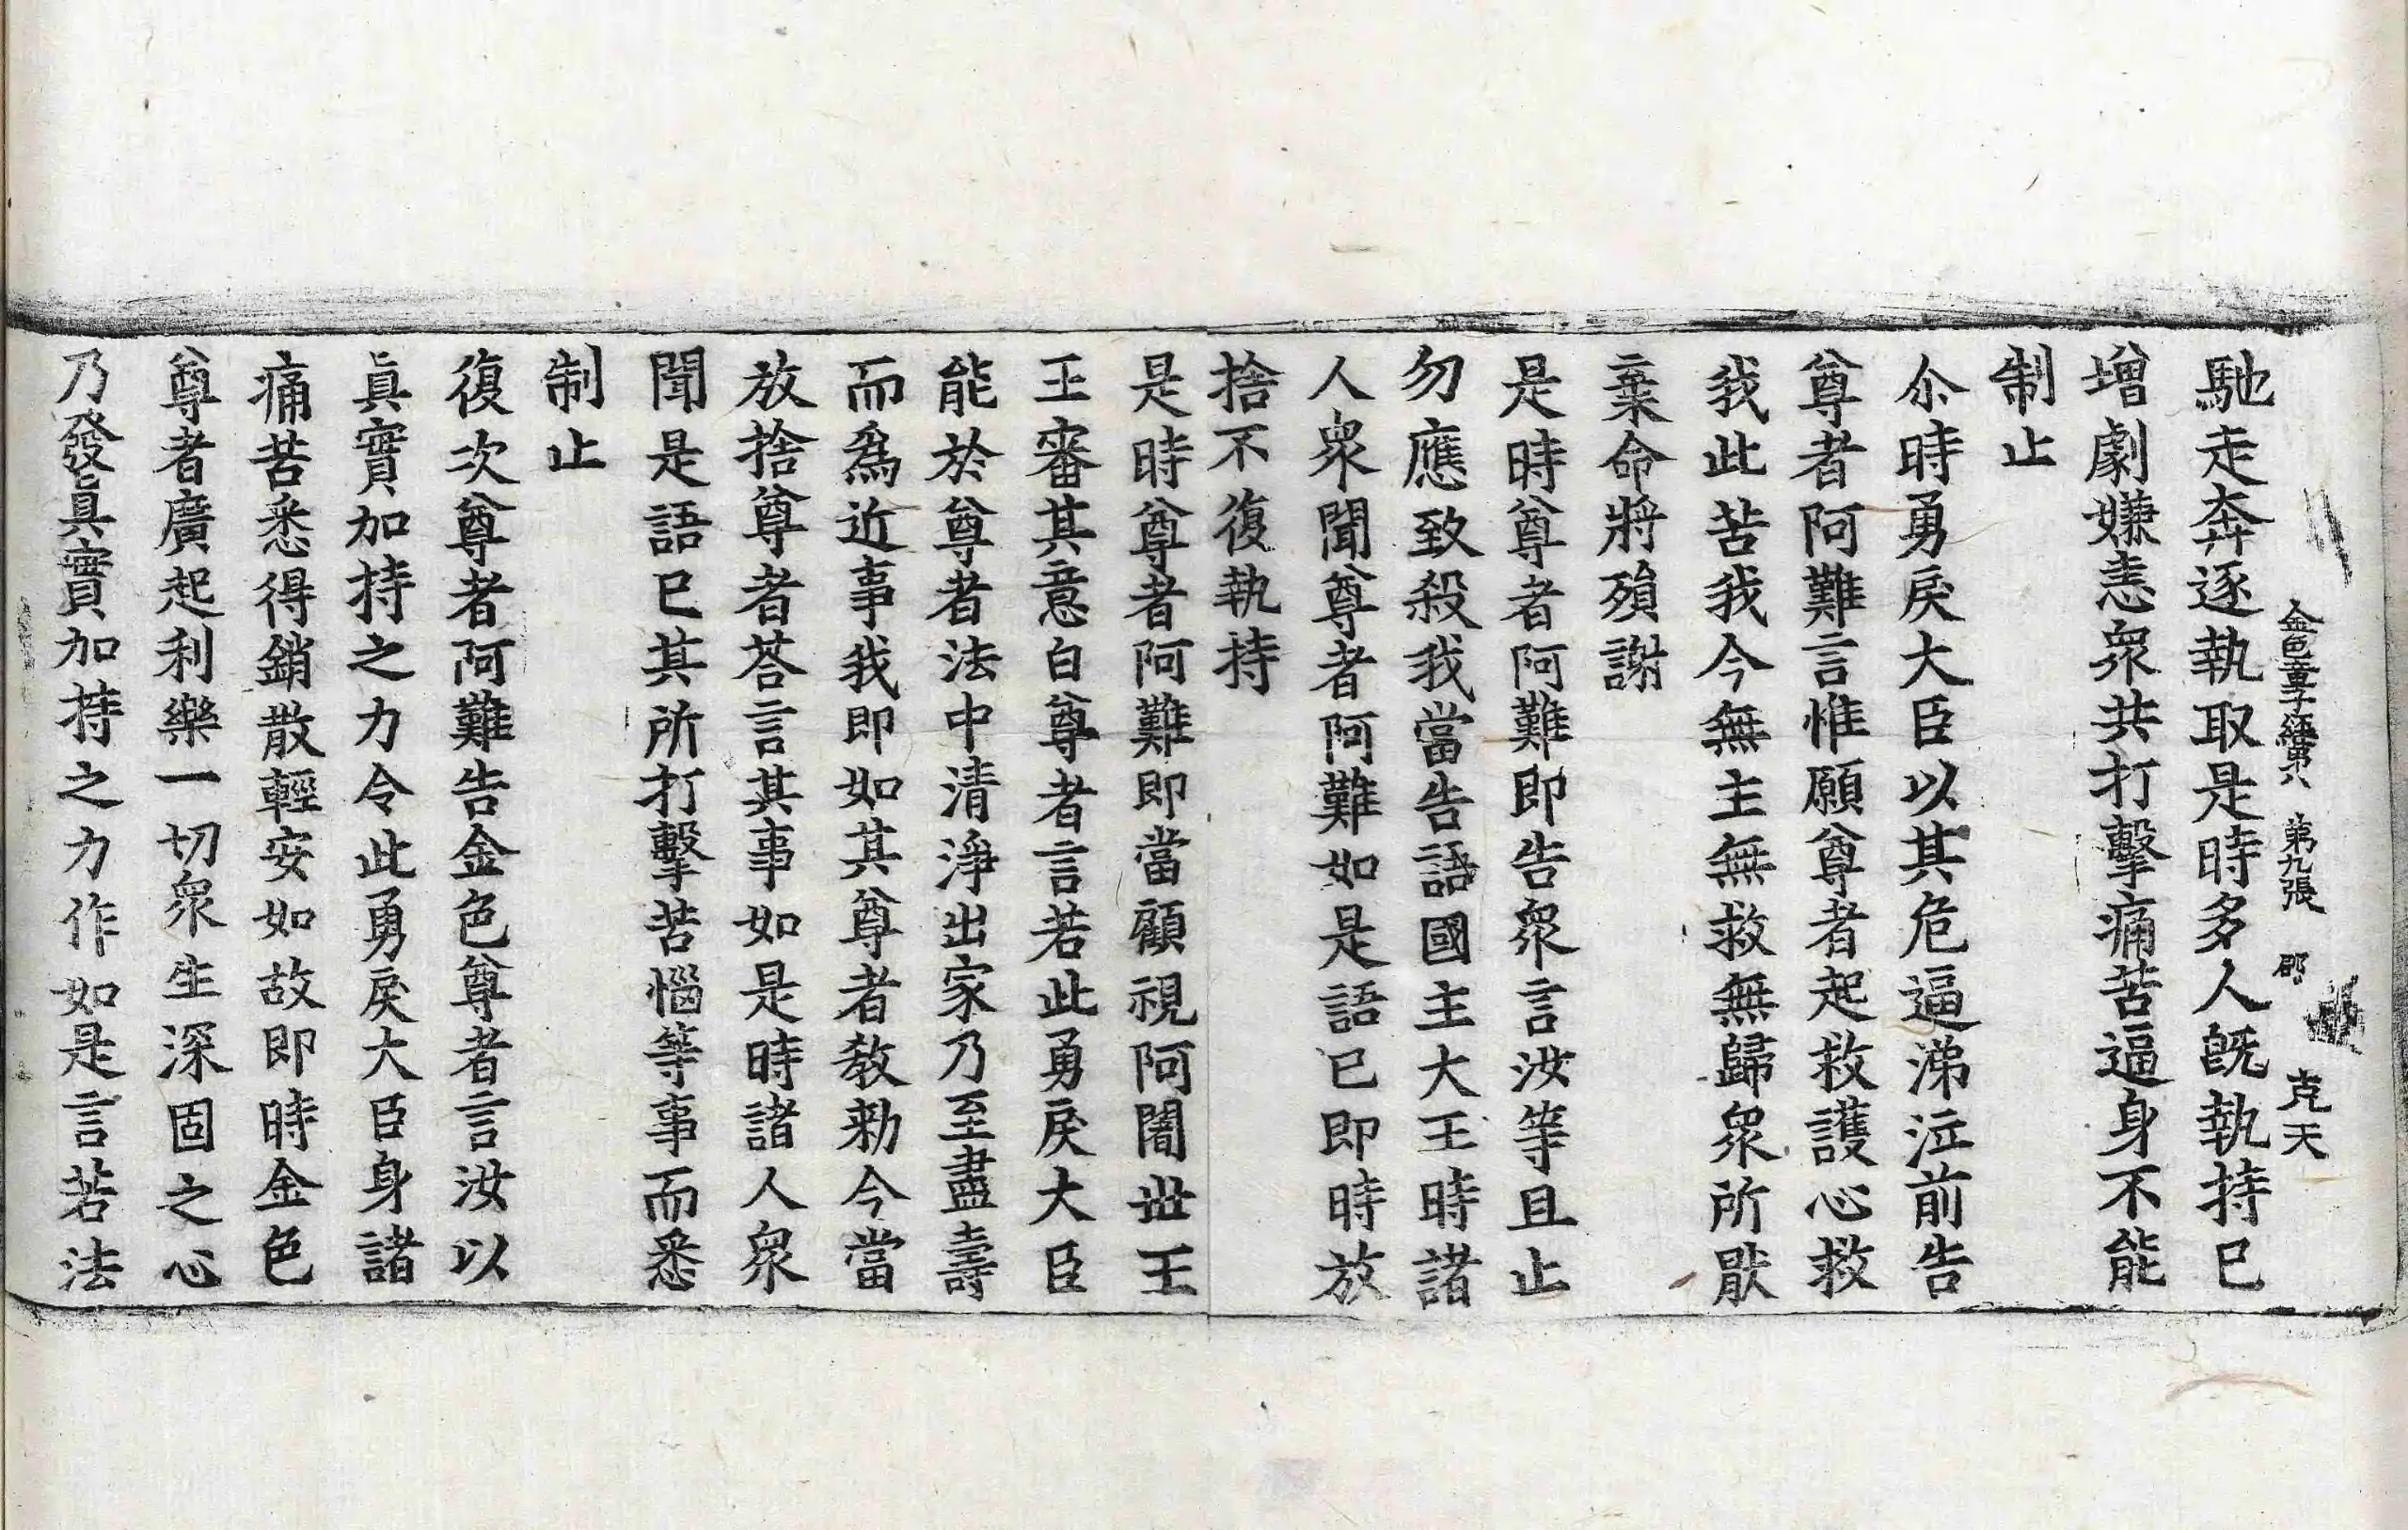 金色童子經第八 第九張 郡 克天
馳走奔逐執取是時多人旣執持已
增劇嫌恚衆共打擊痛苦逼身不能
制止
尒時勇戾大臣以其危逼涕泣前告
尊者阿難言惟願尊者起救護心救
我此苦我今無主無救無歸衆所猒
棄命將殞謝
是時尊者阿難即告衆言汝等且止
勿應致殺我當告語國主大王時諸
人衆聞尊者阿難如是語已即時放
捨不復執持
是時尊者阿難即當顧視阿闍世王
王審其意白尊者言若此勇戾大臣
能於尊者法中清淨出家乃至盡壽
而爲近事我即如其尊者教勑今當
放捨尊者荅言其事如是時諸人衆
聞是語已其所打擊苦惱等事而悉
制止
復次尊者阿難告金色尊者言汝以
眞實加持之力令此勇戾大臣身諸
痛苦悉得銷散輕安如故即時金色
尊者廣起利樂一切衆生深固之心
乃發眞實加持之力作如是言若法